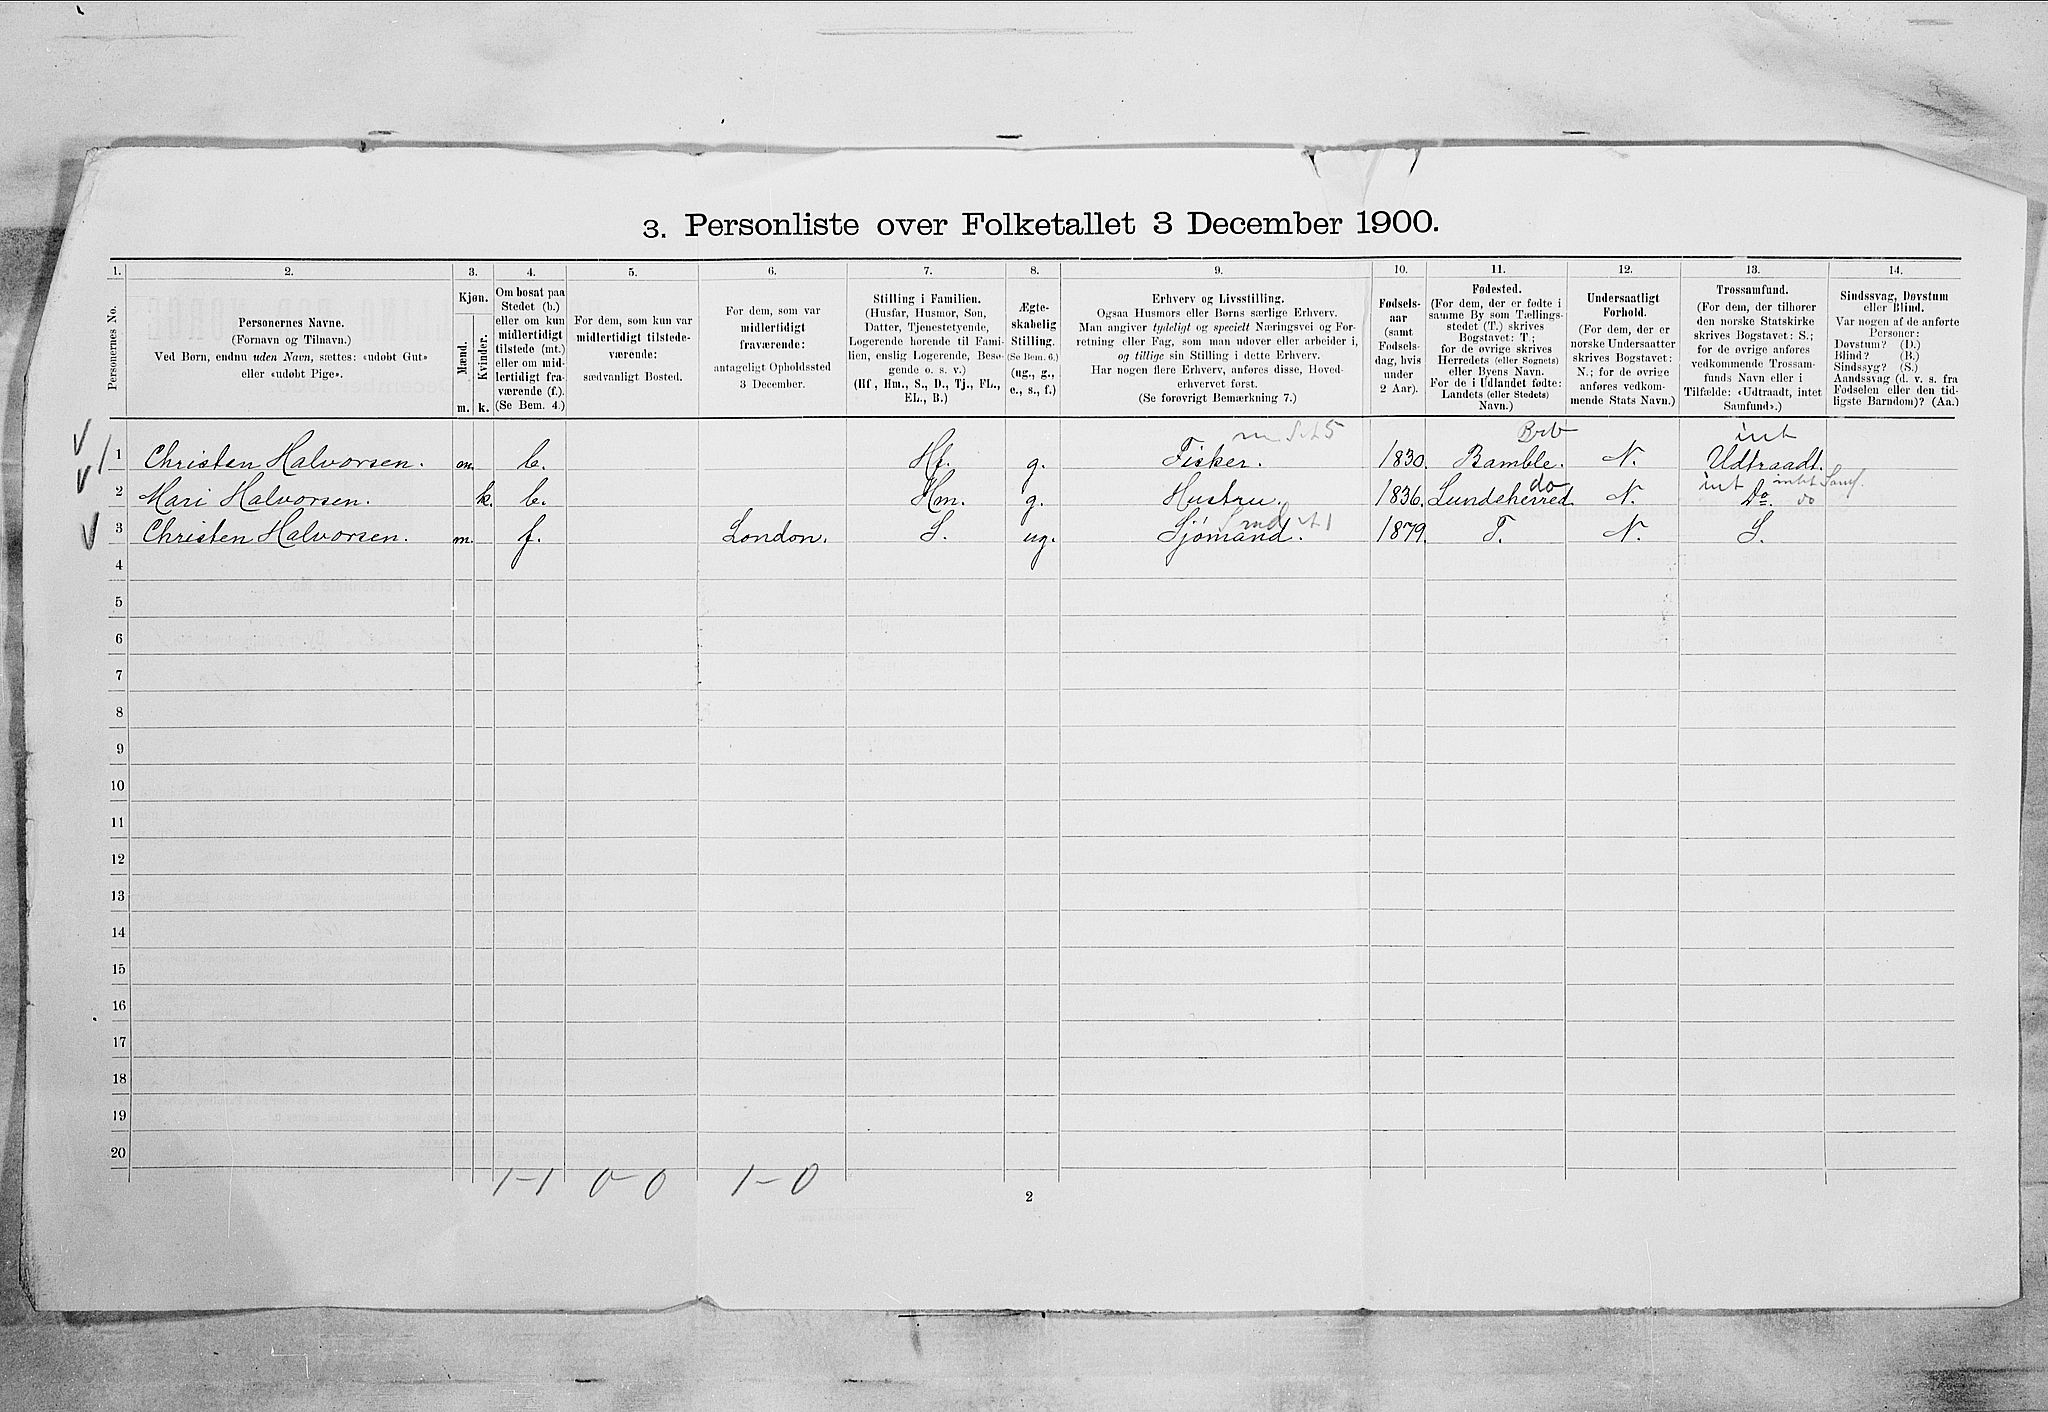 3. Personliste over Folketallet 3 December 1900.
1. 2. 3. 4. 5. 6. 7. 8. 9. 10. 11. 12. 13. 14.
Personernes No.
Personernes Navne.
(Fornavn og Tilnavn.)
Ved Børn, endnu uden Navn, sættes: «udøbt Gut»
eller «udøbt Pige».
Kjøn.
Mænd.
Kvinder.
m. k.
Om bosat paa
Stedet (b.)
eller om kun
midlertidigt
tilstede (mt.)
eller om mid-
lertidigt fra-
værende (f.).
(Se Bem. 4.)
For dem, som kun var
midlertidigt tilstede-
værende:
sædvanligt Bosted.
For dem, som var
midlertidigt
fraværende:
antageligt Opholdssted
3 December.
Stilling i Familien.
(Husfar, Husmor, Søn,
Datter, Tjenestetyende,
Logerende hørende til Fami-
lien, enslig Logerende, Besø-
gende o. s. v.)
(Hf, Hm., S., D., Tj., FL.,
EL., B.)
Ægte-
skabelig
Stilling.
(Se Bem. 6.)
(ug., g.,
e., s., f.)
Erhverv og Livsstilling.
Ogsaa Husmors eller Børns særlige Erhverv.
Man angiver tydeligt og specielt Næringsvei og For-
retning eller Fag, som man udover eller arbeider i,
og tillige sin Stilling i dette Erhverv.
Har nogen flere Erhverv, anføres disse, Hoved-
erhvervet først.
(Se forøvrigt Bemærkning 7.)
Fødsels-
aar
(samt
Fødsels-
dag, hvis
under
2 Aar).
Fødested.
(For dem, der er fødte i
samme By som Tællings-
stedet (T.) skrives
Bogstavet: T.;
for de øvrige skrives
Herredets (eller Sognets)
eller Byens Navn.
For de i Udlandet fødte:
Landets (eller Stedets)
Navn.)
Undersaatligt
Forhold.
(For dem, der er
norske Undersaatter
skrives Bogstavet:
N.; for de øvrige
anføres vedkom-
mende Stats Navn.)
Trossamfund.
(For dem, der tilhører
den norske Statskirke
skrives Bogstavet: S.;
for de øvrige anføres
vedkommende Trossam-
funds Navn eller i
Tilfælde: «Udtraadt, intet
Samfund».)
Sindssvag, Døvstum
eller Blind.
Var nogen af de anførte
Personer:
Døvstum? (D.)
Blind? (B.)
Sindssyg? (S.)
Aandssvag (d. v. s. fra
Fødselen eller den tid-
ligste Barndom)? (Aa.)
Brb int
1 Christen Halvorsen. m. b. Hf. g. Fisker. 1830. Bamble. N. Udtraadt.
do int intet Samf.
2 Mari Halvorsen. k. b. Hm. g. Hustru. 1836. Lundeherred N. Do. do
3 Christen Halvorsen. m. f. London. S. ug. Sjømand. 1879. T. N. S.
4
5
6
7
8
9
10
11
12
13
14
15
16
17
18
19
20
1-1 0-0 1-0
2